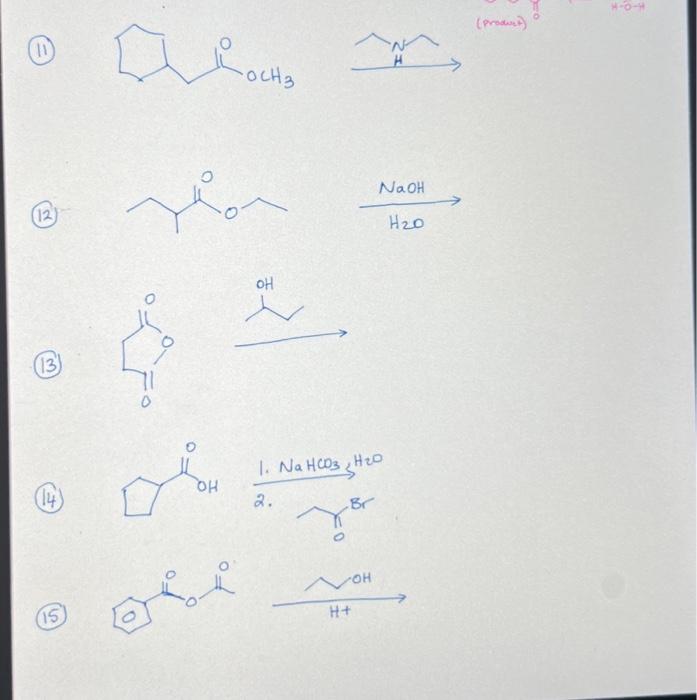 (Product)
O
H-O-H
11
O
OCH3
N
H
12
O
O
NaOH
H2O
13
O
O
O
OH
14
O
OH
1. NaHCO3, H2O
2.
Br
O
15
O
O
O
OH
H+